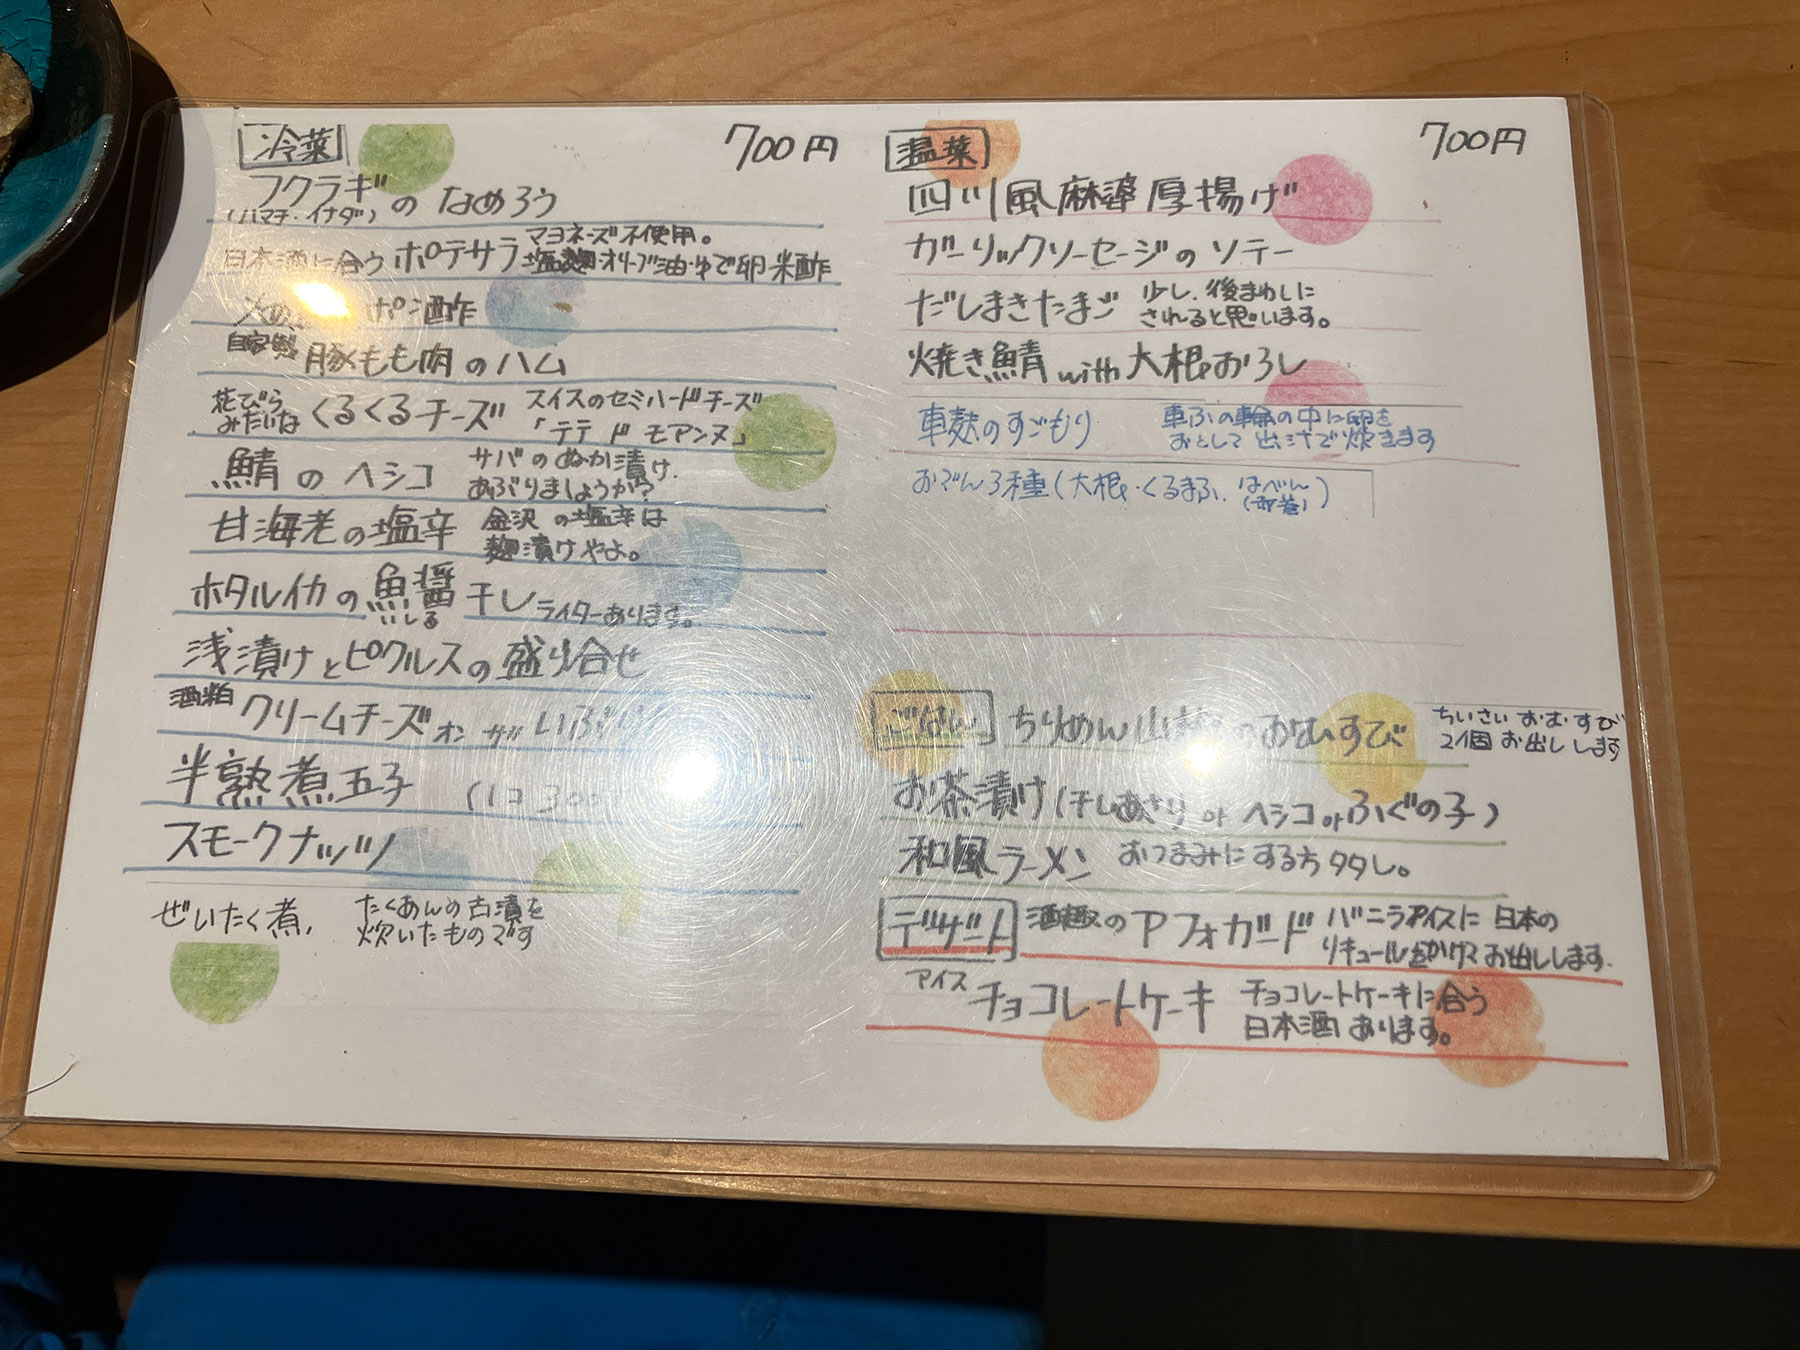 冷菜 700円
フクラギの なめろう
(ハマチ・イナダ)
日本酒に合う ポテサラ マヨネーズ不使用。
塩麹・オリーブ油・ゆで卵 米酢
ポン酢
自家製 豚もも肉のハム
花びら
みたいな くるくるチーズ スイスのセミハードチーズ
「テテ ド モアンヌ」
鯖の ヘシコ サバのぬか漬け.
あぶりましょうか?
甘海老の塩辛 金沢の塩辛は
麹漬けやよ。
ホタルイカの魚醤干し ライターあります。
いしる
浅漬けとピクルスの盛り合せ
酒粕 クリームチーズ オン ザ いぶり
半熟煮玉子 (1コ 300
スモークナッツ
ぜいたく煮, たくあんの古漬を
炊いたものです
温菜 700円
四川風麻婆厚揚げ
ガーリックソーセージのソテー
だしまきたまご 少し、後まわしに
されると思います。
焼き鯖 with 大根おろし
車麸のすごもり 車ふの輪の中に卵を
おとして 出汁で炊きます
おでん3種(大根・くるまふ. はべん)
ごはん ちりめん山椒のおむすび ちいさい おむすび
2個 お出しします
お茶漬け(干しあさり or ヘシコ or ふぐの子)
和風ラーメン おつまみにする方 多し。
デザート 酒趣のアフォガード バニラアイスに 日本の
リキュールをかけて お出しします.
アイス チョコレートケーキ チョコレートケーキに合う
日本酒 あります。